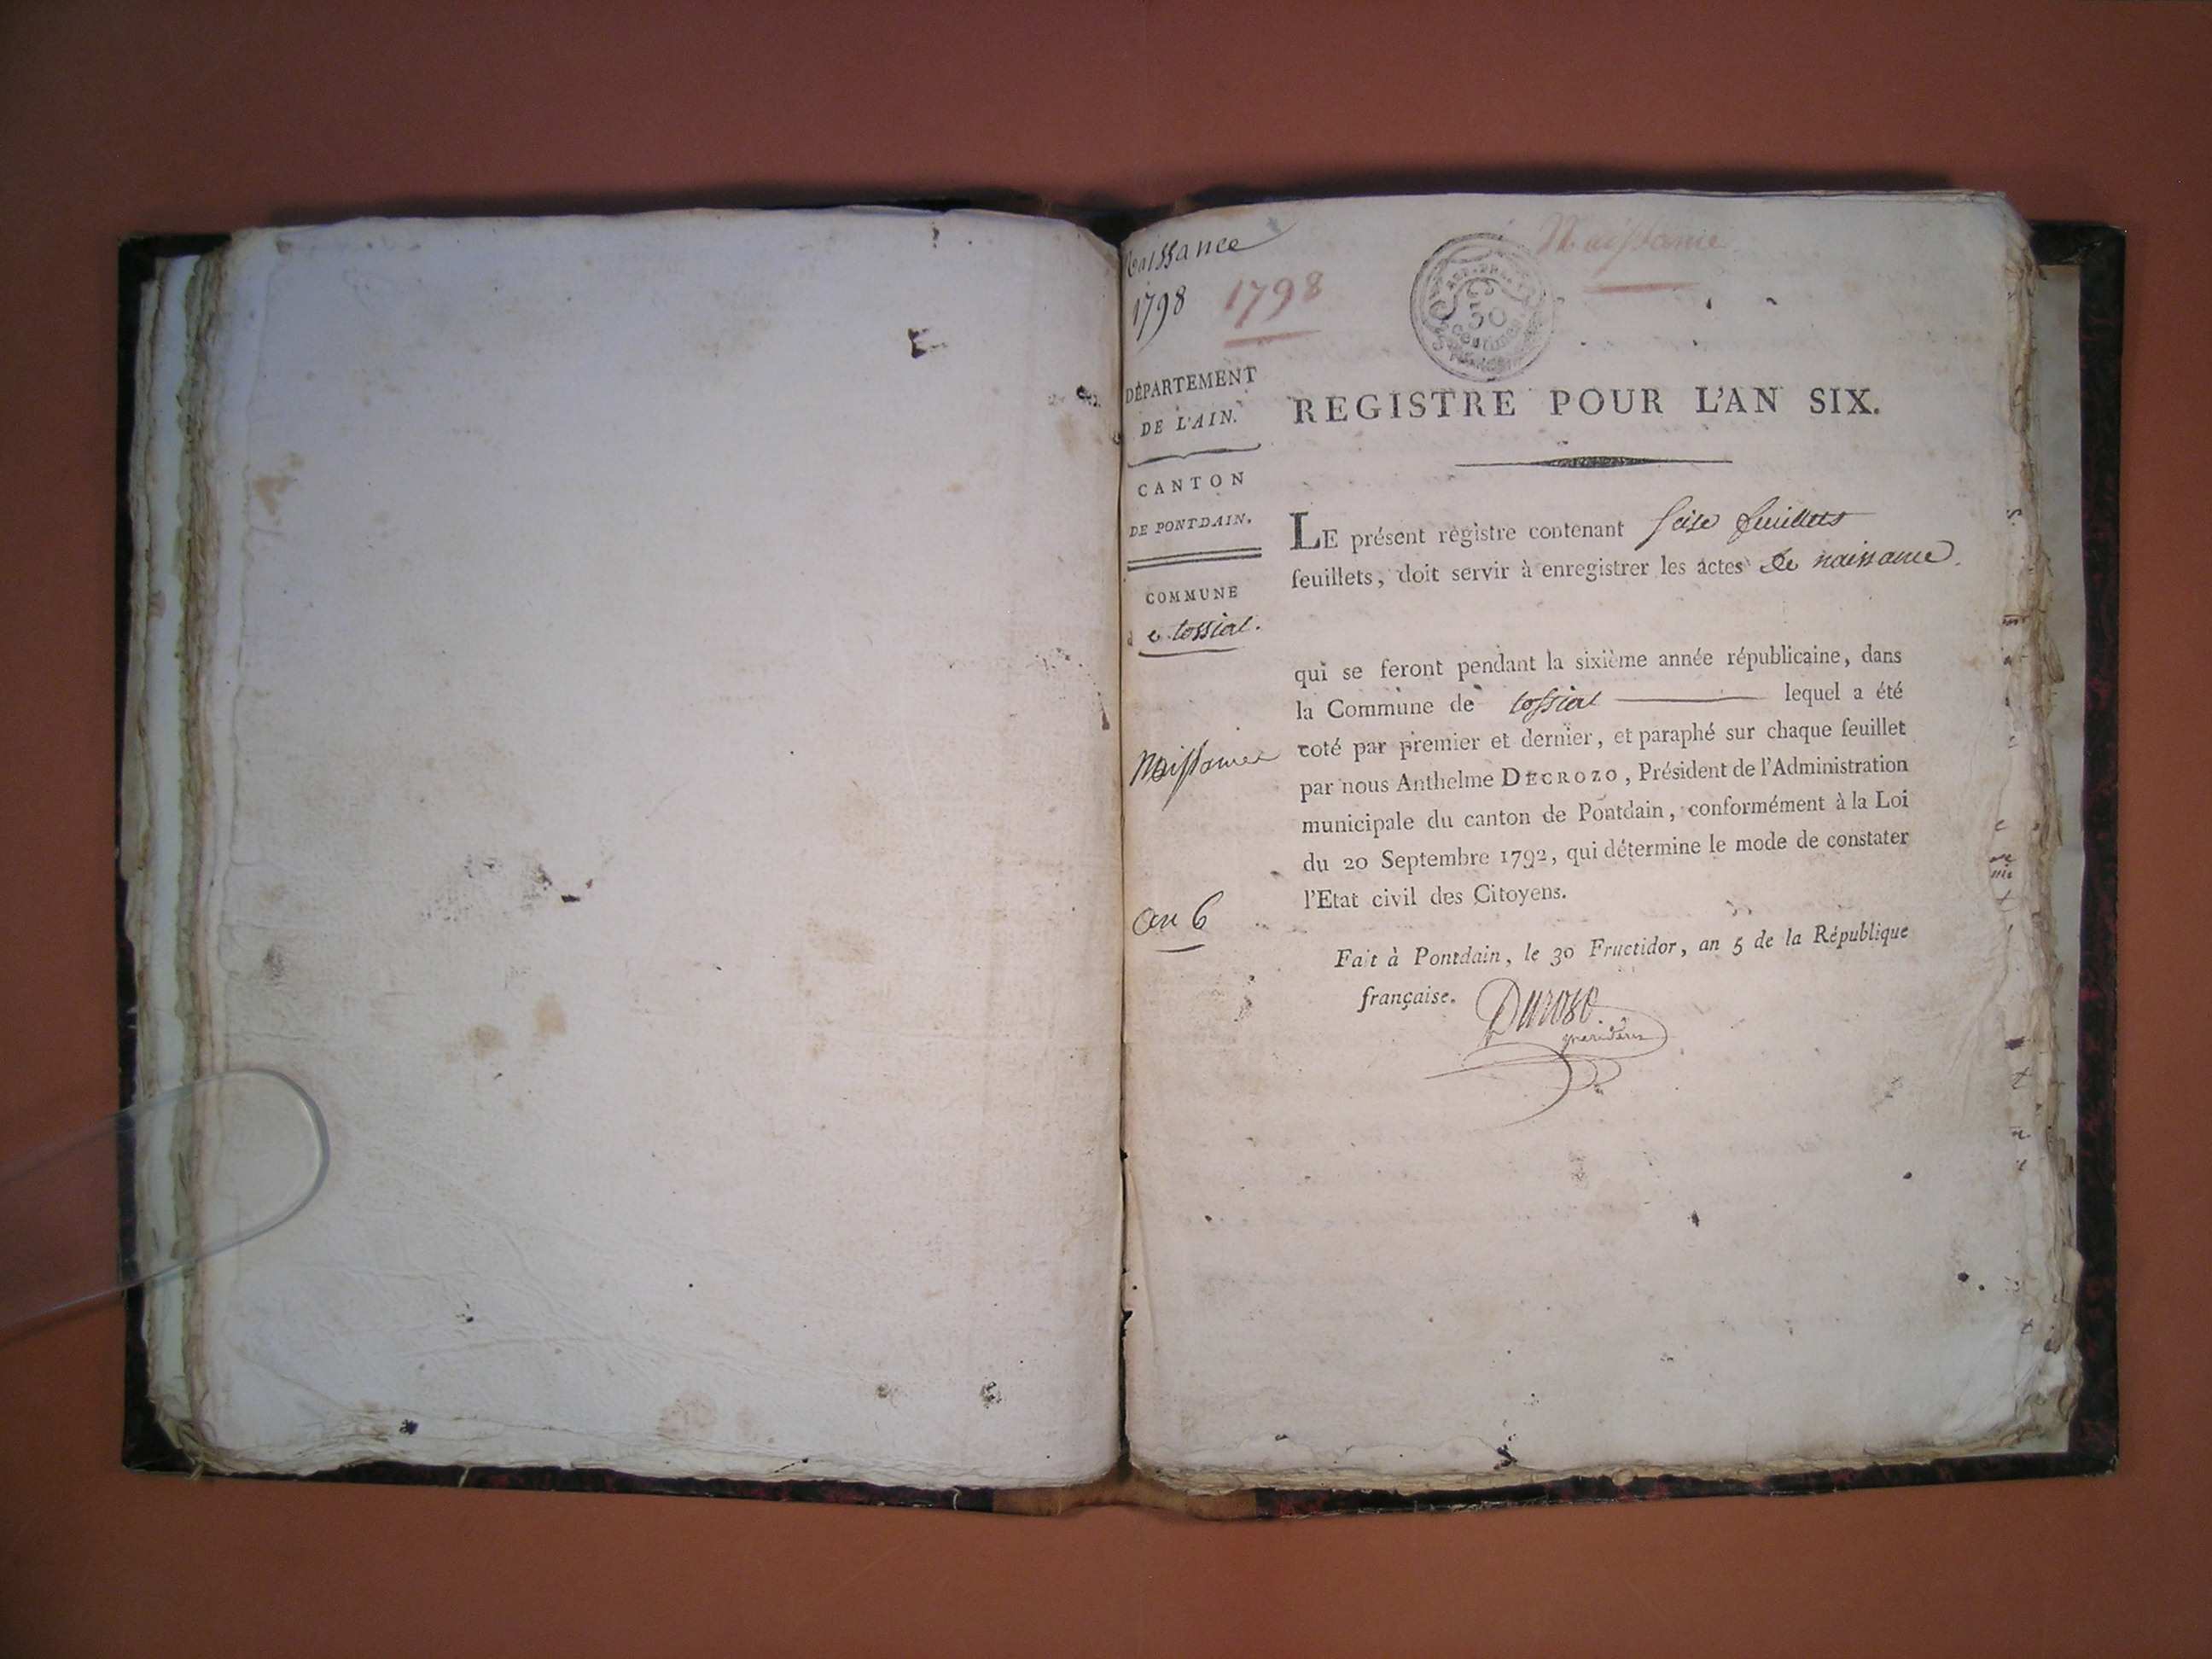 Naissance
1798 1798
Naissance
50
centimes
DÉPARTEMENT
DE L'AIN.
CANTON
DE PONTDAIN.
COMMUNE
de tossiat.
Naissance
an 6
REGISTRE POUR L'AN SIX.
LE présent régistre contenant seise feuillets
feuillets, doit servir à enregistrer les actes de naissance.
qui se feront pendant la sixième année républicaine, dans
la Commune de tossiat lequel a été
coté par premier et dernier, et paraphé sur chaque feuillet
par nous Anthelme DECROZO, Président de l'Administration
municipale du canton de Pontdain, conformément à la Loi
du 20 Septembre 1792, qui détermine le mode de constater
l'Etat civil des Citoyens.
Fait à Pontdain, le 30 Fructidor, an 5 de la République
française.